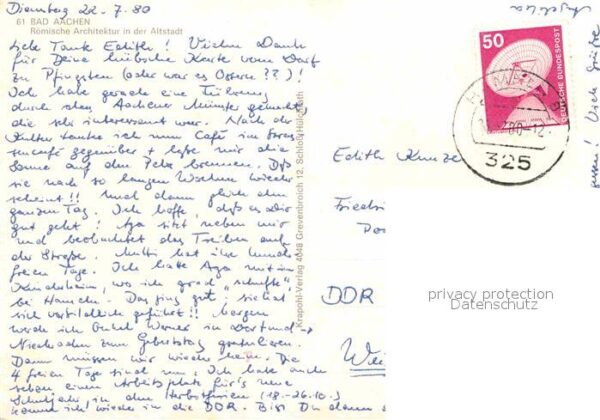 Dienstag 22.7.80
61 BAD AACHEN
Römische Architektur in der Altstadt
Liebe Tante Edith! Vielen Dank
für Deine hübsche Karte vom Dorf
zu Pfingsten (oder war es Ostern??)!
Ich habe gerade eine Führung
durch den Aachener Münster gemacht
die sehr interessant war. Nach der
Kultur tanke ich nun Café im Stras-
sencafé gegenüber + lasse mir die
Sonne auf den Pelz brennen. Daß
sie nach so langen Wochen wieder
scheint!! Und dann gleich den
ganzen Tag. Ich hoffe, daß es Dir
gut geht! Aga sitzt neben mir
und beobachtet das Treiben auf
der Straße. Mutti hat ihre
freien Tage. Ich hatte Aga mit im
Kinderheim, wo ich grad "schufte"
bei Hameln. Das ging gut; sie hat
sich vorbildlich geführt!! Morgen
werde ich Onkel Werner in Dortmund-
zum Geburtstag gratulieren.
Dann müssen wir wieder heim. Die
4 freien Tage sind um. Ich habe auch
schon einen Arbeitsplatz für's neue
Schuljahr in den Herbstferien (18.-26.10.)
komme ich wieder in die DDR. Bist Du dann
Krapohl-Verlag 4048 Grevenbroich 12, Schloß Hülchrath
50
DEUTSCHE BUNDESPOST
-12
325
Edith Kunze
DDR
privacy protection
Datenschutz
Viele Grüße
Angelika